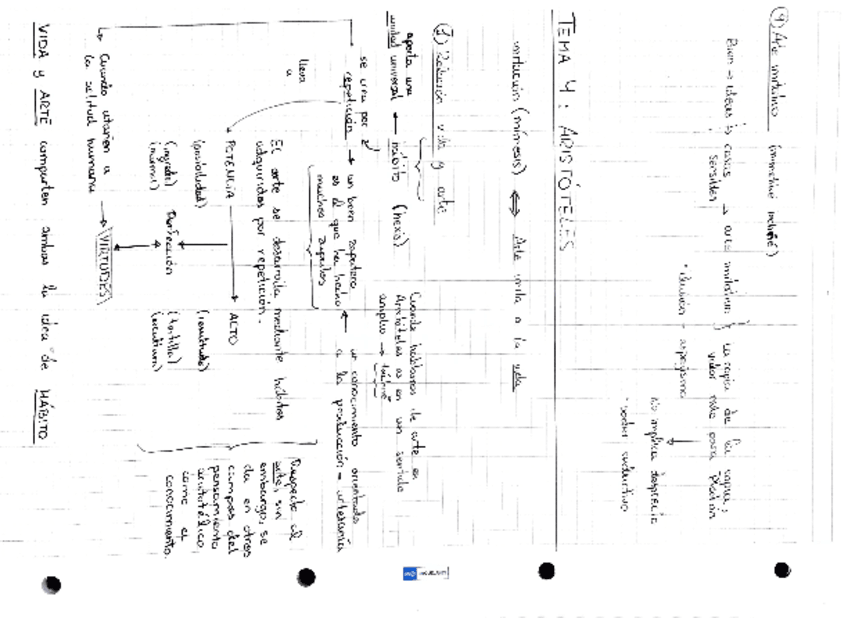 ④ Arte imitativo (mimetiké techné)
Bien → ideas → cosas → arte imitativo } La copia de la copia;
sensibles valor nulo para Platón
• Ilusión - espejismo
No implica desprecio
• poder seductivo
TEMA 4: ARISTÓTELES
imitación (mímesis) ⟺ Arte imita a la vida
① Relación vida y arte
aporta una
unidad universal ← hábito (hexis)
Cuando hablamos de arte en
Aristóteles es en un sentido
amplio → techné
se crea por
repetición → un buen zapatero
es el que ha hecho
muchos zapatos
← un conocimiento orientado
a la producción - artesanía
lleva
a
El arte se desarrolla mediante hábitos
adquiridos por repetición.
POTENCIA → ACTO
(posibilidad) (resultado)
Perfección (tortilla)
Respecto al
arte, sin
embargo, se
da en otros
campos del
pensamiento
aristotélico,
como el
conocimiento.
↳ Cuando atañen a
la actitud humana → VIRTUDES
VIDA y ARTE comparten ambas la idea de HÁBITO